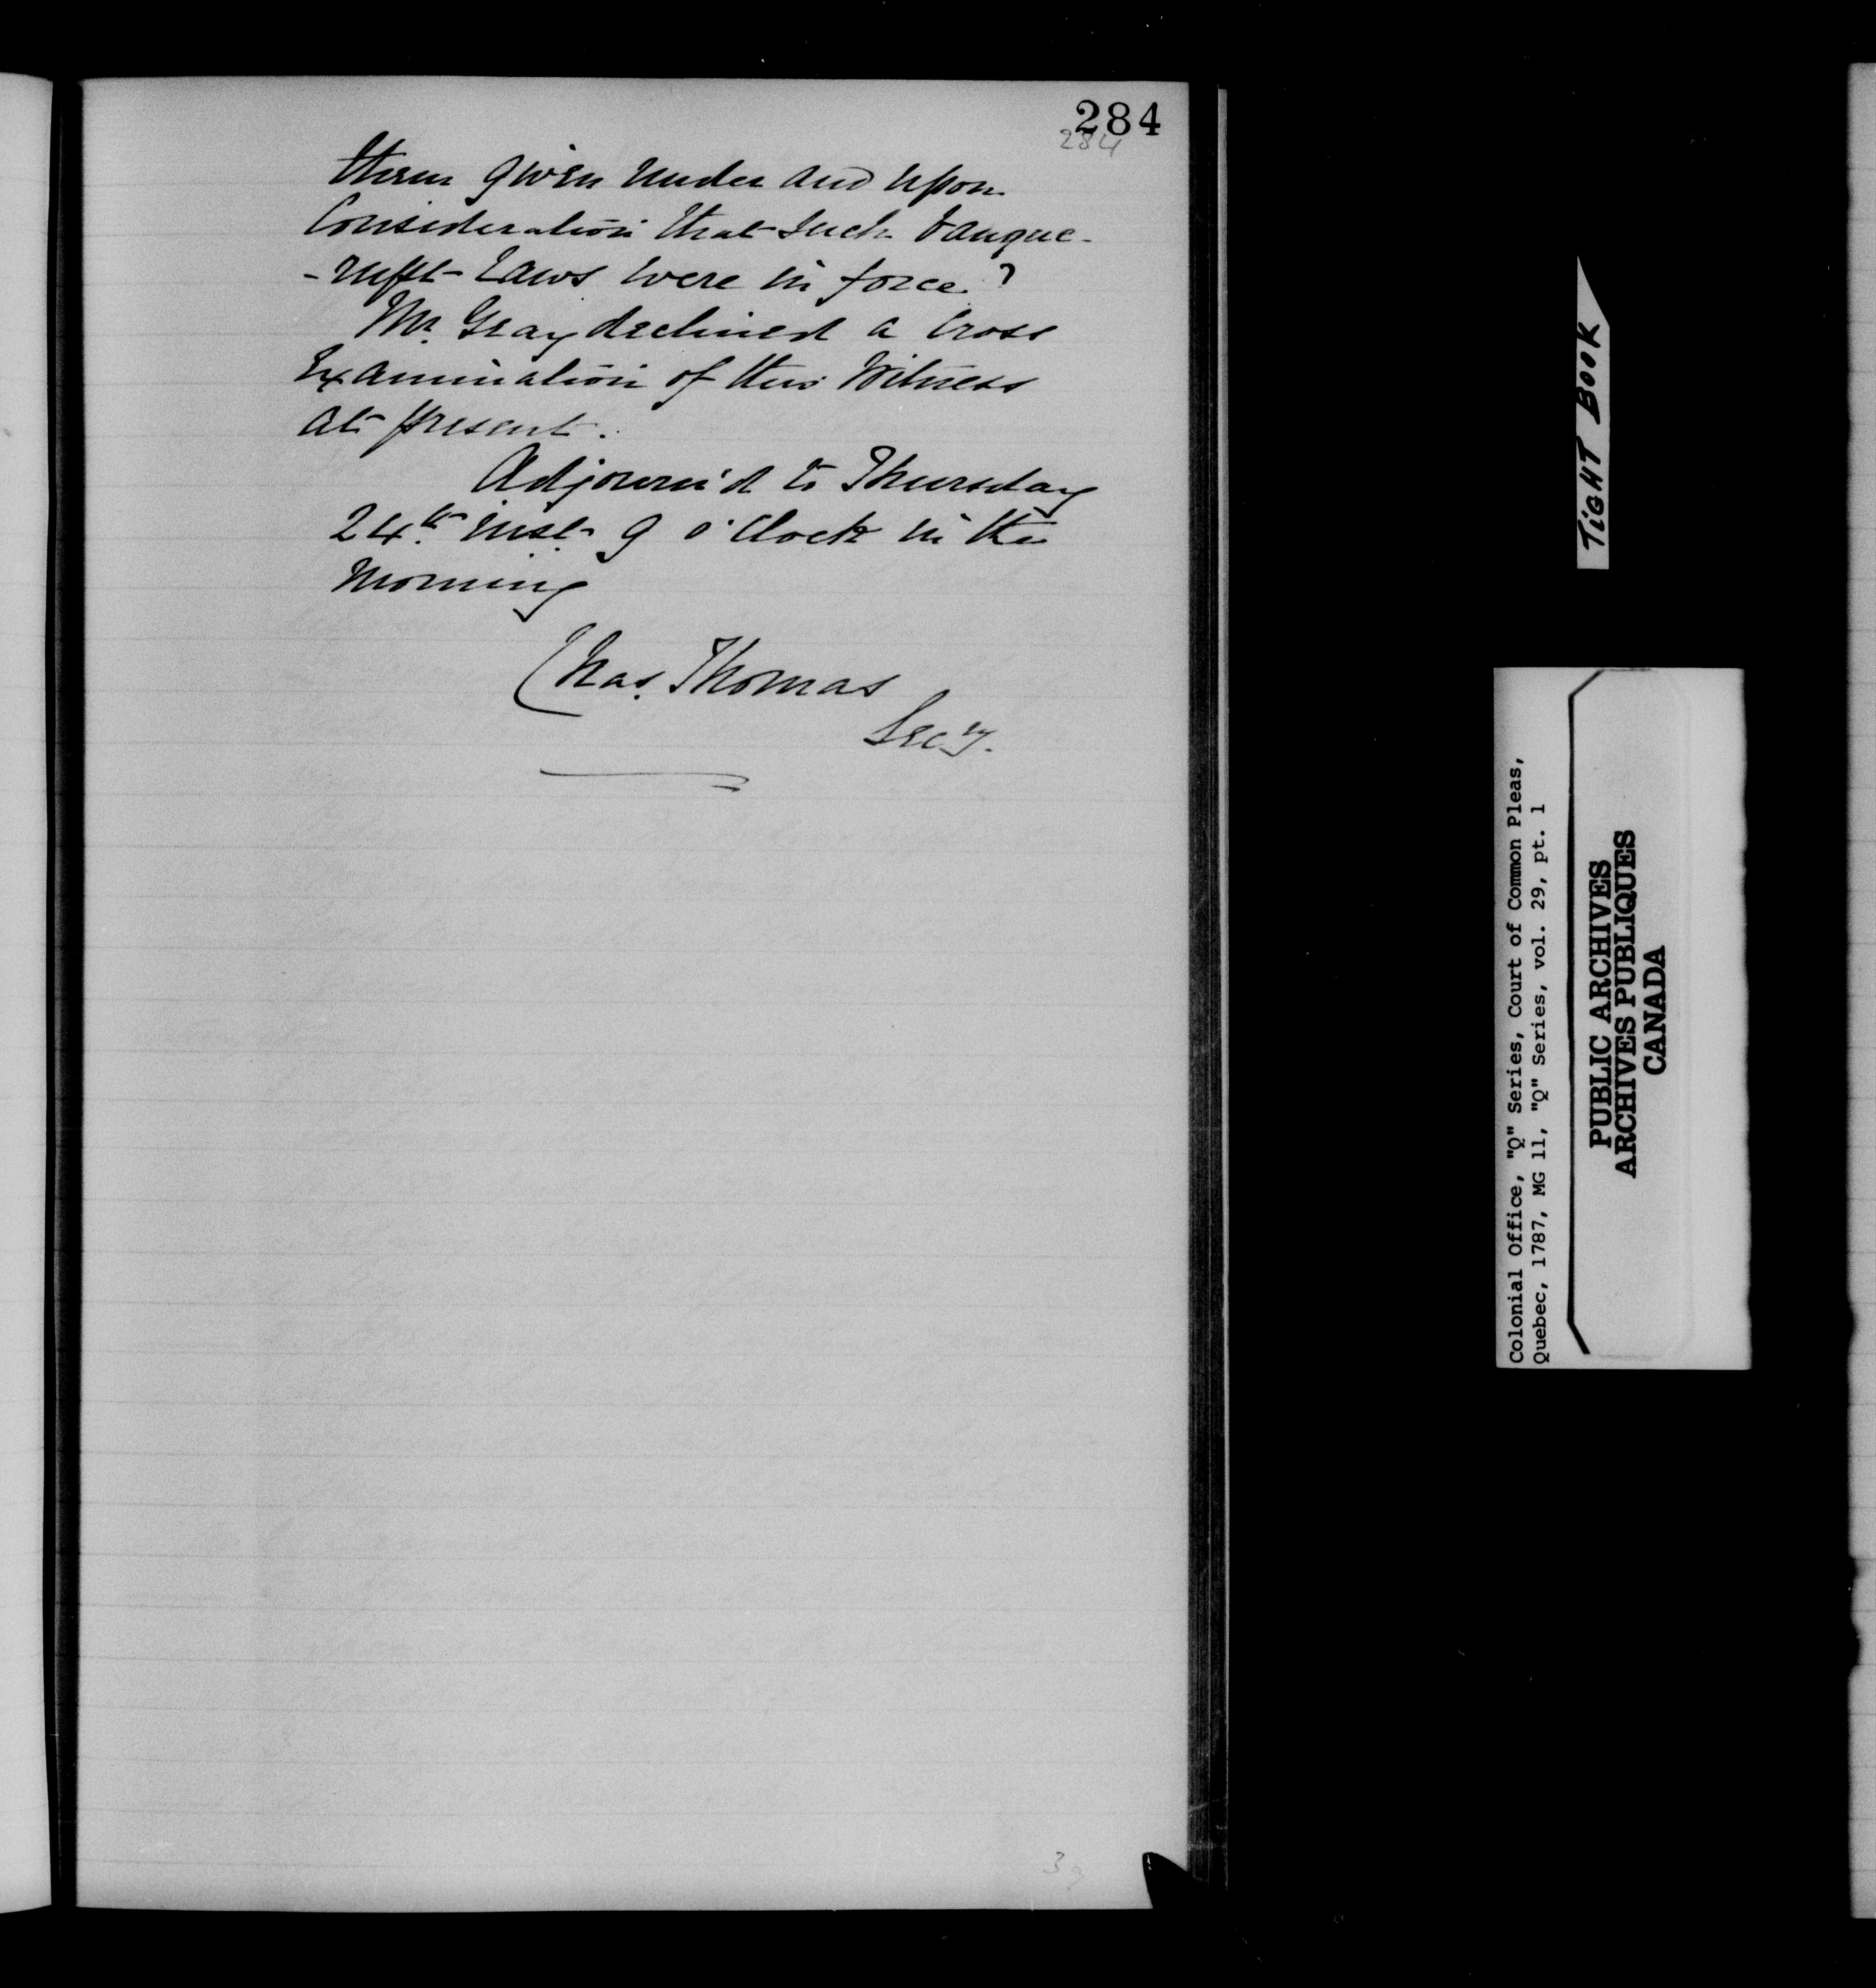 284
284
them given under and upon
Consideration that such banque-
-rupt Laws were in force?
Mr. Gray declined a Cross
Examination of this Witness
at present.
Adjourn'd to Thursday
24th Inst. 9 o'Clock in the
Morning
Chas. Thomas
Secy.
TIGHT BOOK
Colonial Office, "Q" Series, Court of Common Pleas,
Quebec, 1787, MG 11, "Q" Series, vol. 29, pt. 1
PUBLIC ARCHIVES
ARCHIVES PUBLIQUES
CANADA